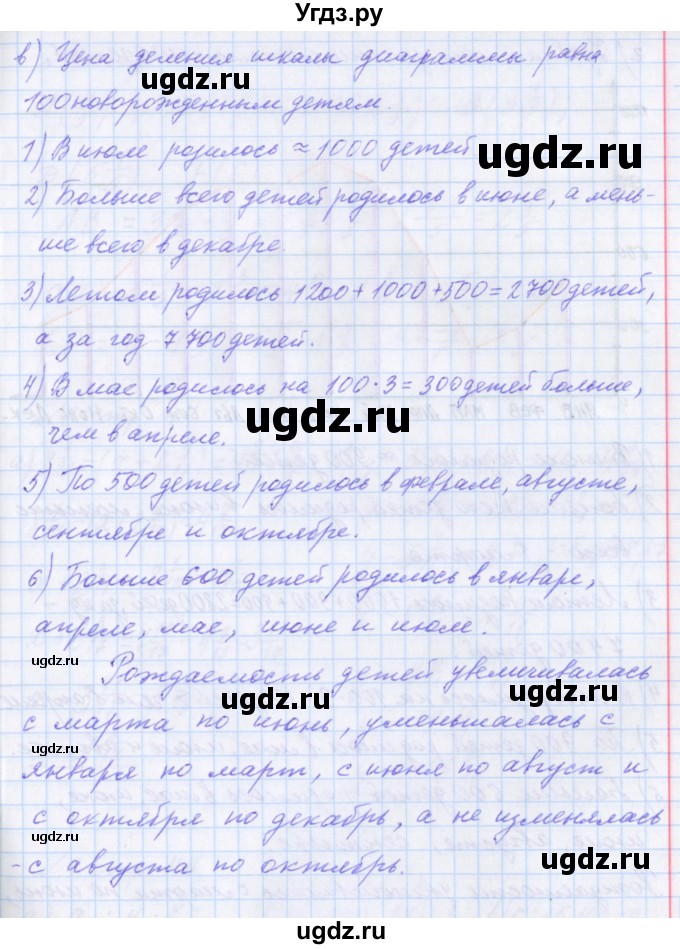 Угдз.ру
в) Цена деления шкалы диаграммы равна
100 новорожденным детям.
1) В июле родилось ≈ 1000 детей
2) Больше всего детей родилось в июне, а мень-
ше всего в декабре.
3) Летом родилось 1200 + 1000 + 500 = 2700 детей,
а за год 7 700 детей.
4) В мае родилось на 100 · 3 = 300 детей больше,
чем в апреле.
5) По 500 детей родилось в феврале, августе,
сентябре и октябре.
6) Больше 600 детей родилось в январе,
апреле, мае, июне и июле.
Рождаемость детей увеличивалась
с марта по июнь, уменьшалась с
января по март, с июня по август и
с октября по декабрь, а не изменялась
- с августа по октябрь.
ugdz.ru
ugdz.ru
ugdz.ru
ugdz.ru
ugdz.ru
ugdz.ru
ugdz.ru
ugdz.ru
ugdz.ru
ugdz.ru
ugdz.ru
ugdz.ru